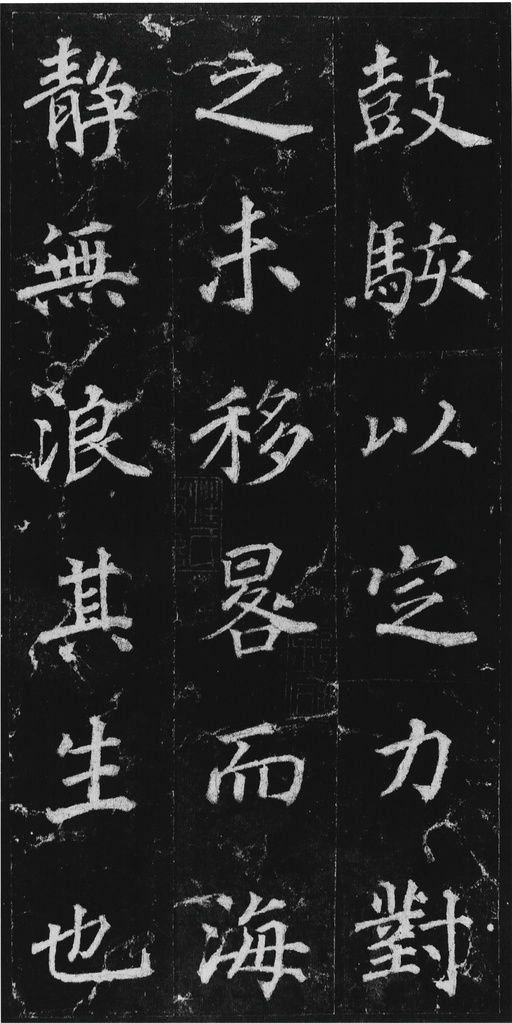 鼓駭以定力對
之未移晷而海
靜無浪其生也